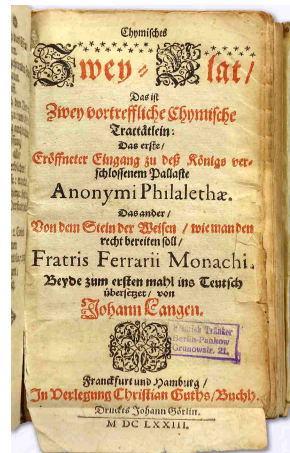 Chymisches
Zwey-Blat/
Das ist
Zwey vortreffliche Chymische
Tractätlein:
Das erste/
Eröffneter Eingang zu deß Königs ver-
schlossenem Pallaste
Anonymi Philalethæ.
Das ander/
Von dem Stein der Weisen / wie man den
recht bereiten soll/
Fratris Ferrarii Monachi.
Beyde zum ersten mahl ins Teutsch
übersetzet / von
Johann Langen.
Tränker
Berlin-Pankow
Grunowstr. 21.
Franckfurt und Hamburg/
In Verlegung Christian Guths/ Buchh.
Druckts Johann Görlin.
M DC LXXIII.